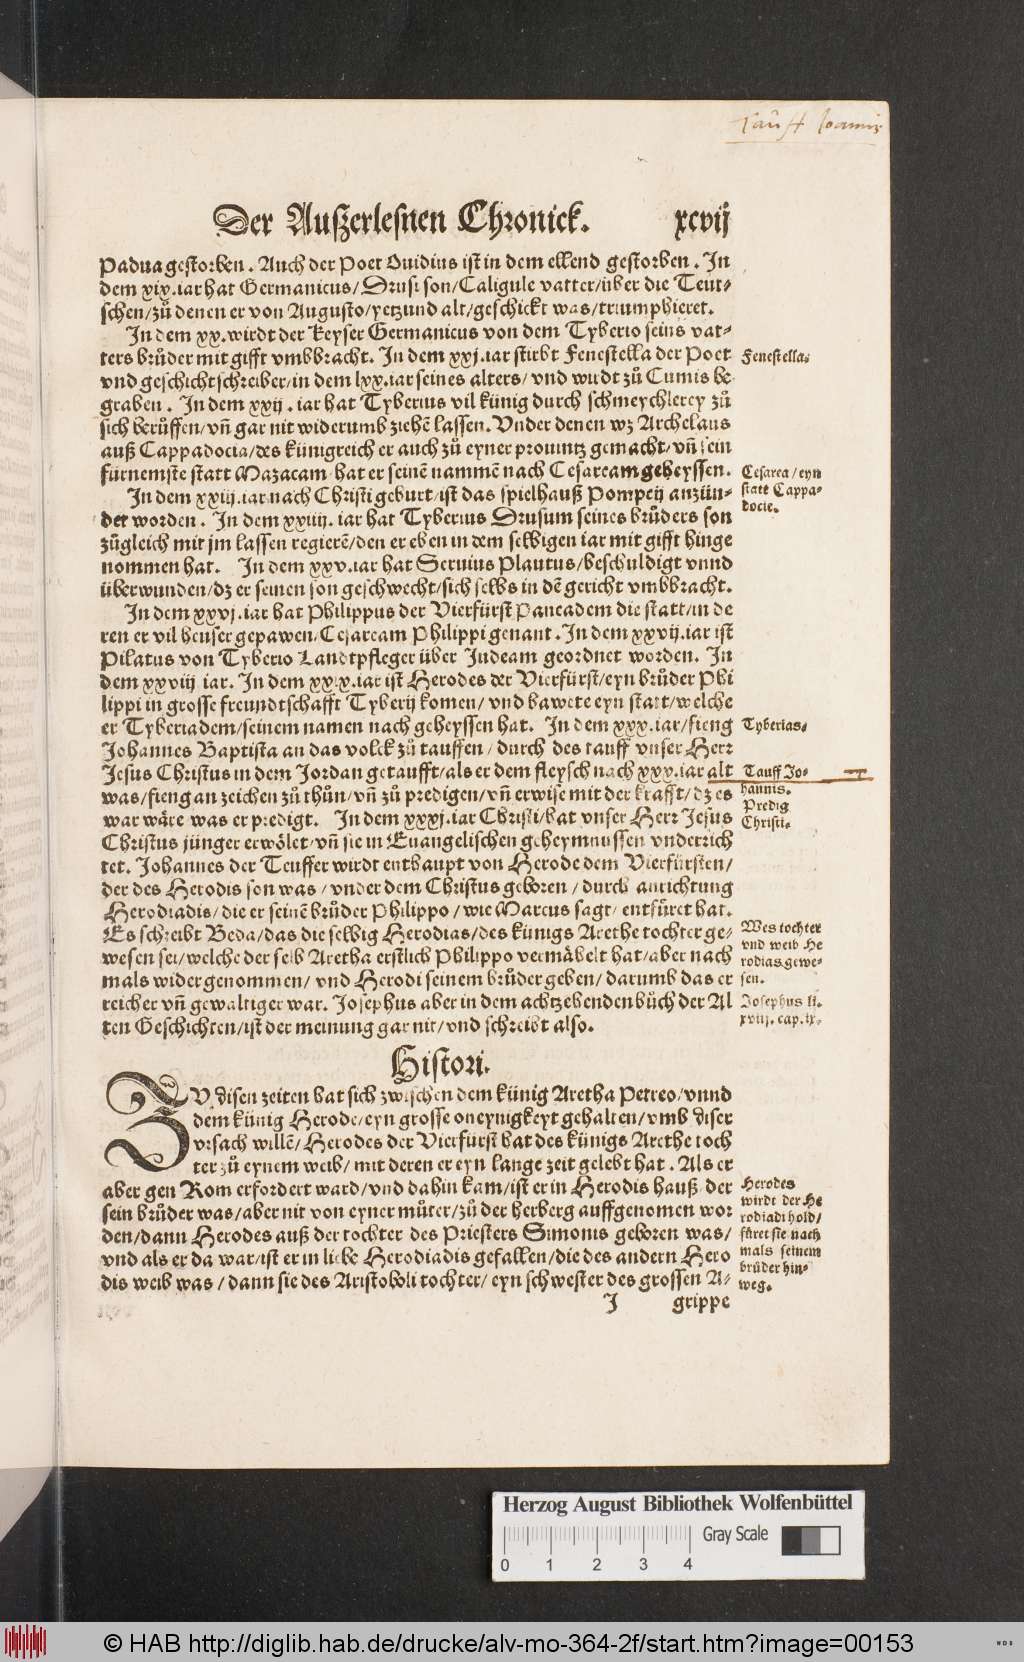 Tauff Joannis
Der Außerlesnen Chronick. xcvij
Padua gestorben. Auch der Poet Ouidius ist in dem ellend gestorben. In
dem xix.iar hat Germanicus/Drusi son/Caligule vatter/über die Teut-
schen/zů denen er von Augusto/yetzund alt/geschickt was/triumphieret.
In dem xx.wirdt der Keyser Germanicus von dem Tyberio seins vat-
ters brůder mit gifft vmbbracht. In dem xxj.iar stirbt Fenestella der Poet
Fenestella.
vnd geschichtschreiber/in dem lxx.iar seines alters/vnd wirdt zů Cumis be-
graben. In dem xxij.iar hat Tyberius vil künig durch schmeychlerey zů
sich berůffen/vñ gar nit widerumb ziehẽ lassen. Vnder denen wz Archelaus
auß Cappadocia/des künigreich er auch zů eyner prouintz gemacht/vñ sein
fürnemste statt Mazacam hat er seinẽ nammẽ nach Cesaream geheyssen.
Cesarea/eyn
statt Cappa-
docie.
In dem xxiij.iar nach Christi geburt/ist das spielhauß Pompeij anzün-
det worden. In dem xxiiij.iar hat Tyberius Drusum seines brůders son
zůgleich mit jm lassen regierẽ/den er eben in dem selbigen iar mit gifft hinge
nommen hat. In dem xxv.iar hat Seruius Plautus/beschuldigt vnnd
überwunden/dz er seinen son geschwecht/sich selbs in dẽ gericht vmbbracht.
In dem xxvj.iar hat Philippus der Vierfürst Paneadem die statt/in de
ren er vil heuser gepawen/Cesaream Philippi genant. In dem xxvij.iar ist
Pilatus von Tyberio Landtpfleger über Judeam geordnet worden. In
dem xxviij iar. In dem xxix.iar ist Herodes der Vierfürst/eyn brůder Phi
lippi in grosse freundtschafft Tyberij komen/vnd bawete eyn statt/welche
er Tyberiadem/seinem namen nach geheyssen hat. In dem xxx.iar/fieng
Tyberias.
Johannes Baptista an das volck zů tauffen/durch des tauff vnser Herr
Jesus Christus in dem Jordan getaufft/als er dem fleysch nach xxx.iar alt
Tauff Jo-
hannis.
was/fieng an zeichen zů thůn/vñ zů predigen/vñ erwise mit der krafft/dz es
Predig
Christi.
war wäre was er predigt. In dem xxxj.iar Christi/hat vnser Herr Jesus
Christus jünger erwölet/vñ sie in Euangelischen geheymnussen vnderrich
tet. Johannes der Teuffer wirdt enthaupt von Herode dem Vierfürsten/
der des Herodis son was/vnder dem Christus geboren/durch anrichtung
Herodiadis/die er seinẽ brůder Philippo/wie Marcus sagt/entfüret hat.
Es schreibt Beda/das die selbig Herodias/des künigs Arethe tochter ge-
Wes tochter
vnd weib He
rodias gewe-
sen.
wesen sei/welche der selb Aretha erstlich Philippo vermähelt hat/aber nach
mals wider genommen/vnd Herodi seinem brůder geben/darumb das er
reicher vñ gewaltiger war. Josephus aber in dem achtzehenden bůch der Al
Josephus li.
xviij. cap.ix.
ten Geschichten/ist der meinung gar nit/vnd schreibt also.
Histori.
ZV disen zeiten hat sich zwischen dem künig Aretha Petreo/vnnd
dem künig Herode/eyn grosse oneynigkeyt gehalten/vmb diser
vrsach willẽ/Herodes der Vierfürst hat des künigs Arethe toch
ter zů eynem weib/mit deren er eyn lange zeit gelebt hat. Als er
aber gen Rom erfordert ward/vnd dahin kam/ist er in Herodis hauß der
sein brůder was/aber nit von eyner můter/zů der herberg auffgenomen wor
den/dann Herodes auß der tochter des Priesters Simonis geboren was/
vnd als er da war/ist er in liebe Herodiadis gefallen/die des andern Hero
dis weib was/dann sie des Aristoboli tochter/eyn schwester des grossen A-
Herodes
wirdt der He
rodiadi hold/
füret sie nach
mals seinem
brůder hin-
weg.
J grippe
Herzog August Bibliothek Wolfenbüttel
Gray Scale
0 1 2 3 4
© HAB http://diglib.hab.de/drucke/alv-mo-364-2f/start.htm?image=00153